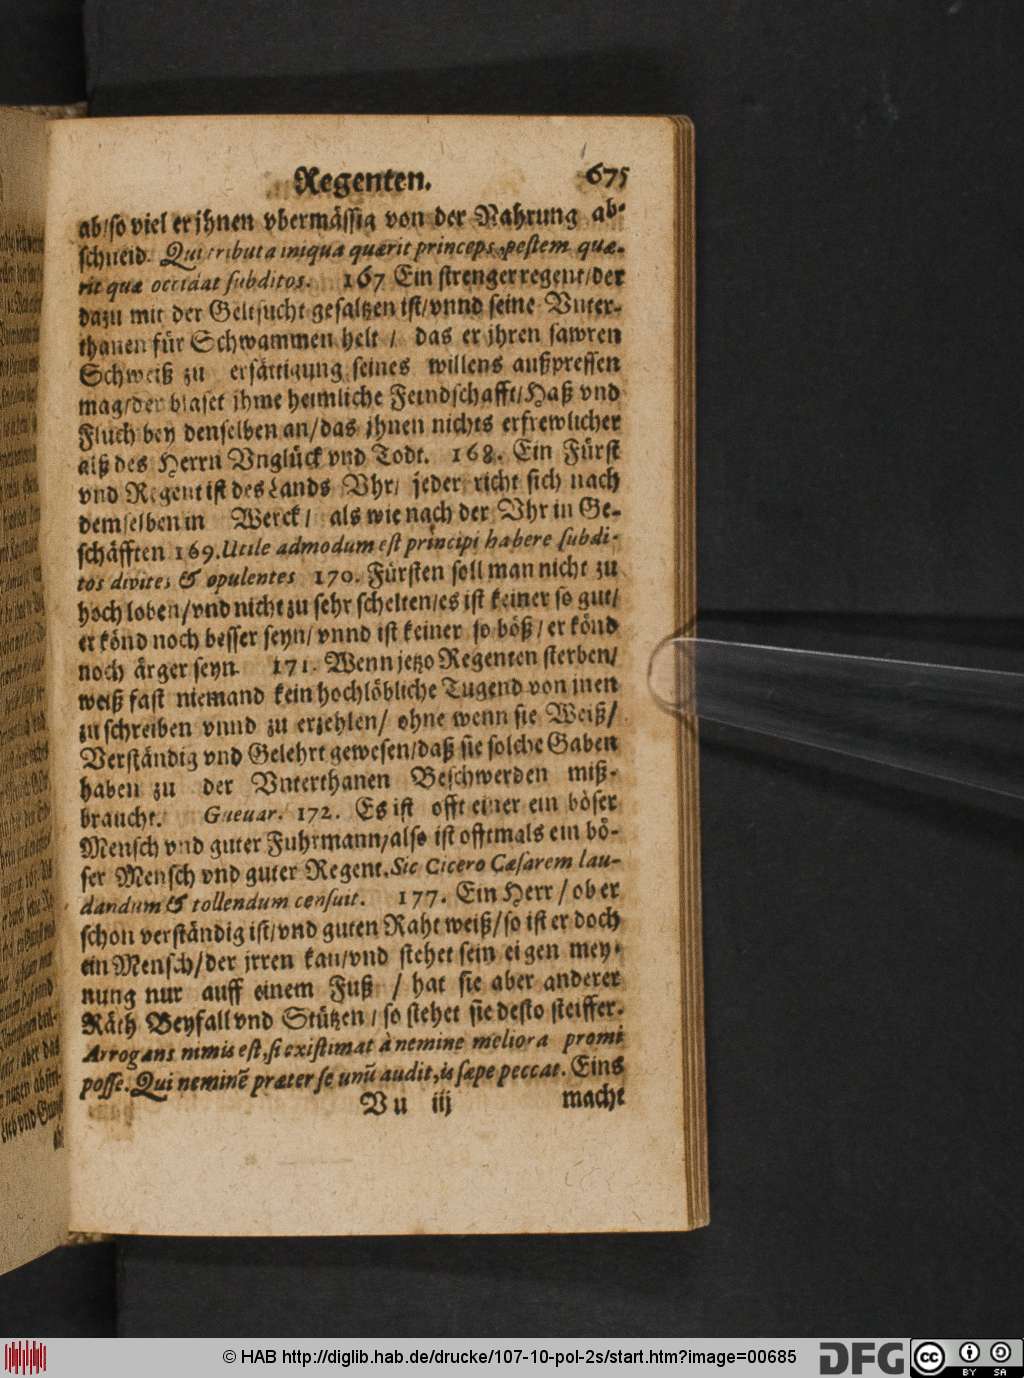 Regenten. 675
ab/so viel er jhnen vbermässig von der Nahrung ab-
schneid. Qui tributa iniqua quærit princeps, pestem quæ-
rit quæ occidat subditos. 167 Ein strenger regent/der
dazu mit der Geltsucht gesaltzen ist/vnnd seine Vnter-
thanen für Schwammen helt / das er jhren sawren
Schweiß zu ersättigung seines willens außpressen
mag/der blaset jhme heimliche Feindschafft/Haß vnd
Fluch bey denselben an/das jhnen nichts erfrewlicher
alß des Herrn Vnglück vnd Todt. 168. Ein Fürst
vnd Regent ist des Lands Vhr/ jeder richt sich nach
demselben in Werck / als wie nach der Vhr in Ge-
schäfften 169. Utile admodum est principi habere subdi-
tos divites & opulentes 170. Fürsten soll man nicht zu
hoch loben/vnd nicht zu sehr schelten/es ist keiner so gut/
er könd noch besser seyn/vnnd ist keiner so böß/er könd
noch ärger seyn. 171. Wenn jetzo Regenten sterben/
weiß fast niemand kein hochlöbliche Tugend von jnen
zu schreiben vnnd zu erzehlen/ ohne wenn sie Weiß/
Verständig vnd Gelehrt gewesen/daß sie solche Gaben
haben zu der Vnterthanen Beschwerden miß-
braucht. Gueuar. 172. Es ist offt einer ein böser
Mensch vnd guter Fuhrmann/also ist offtmals ein bö-
ser Mensch vnd guter Regent. Sic Cicero Cæsarem lau-
dandum & tollendum censuit. 177. Ein Herr / ob er
schon verständig ist/vnd guten Raht weiß/so ist er doch
ein Mensch/der jrren kan/vnd stehet sein eigen mey-
nung nur auff einem Fuß / hat sie aber anderer
Räth Beyfall vnd Stützen / so stehet sie desto steiffer.
Arrogans nimis est, si existimat à nemine meliora promi
posse. Qui neminē præter se unū audit, is sæpe peccat. Eins
Vu iij macht
© HAB http://diglib.hab.de/drucke/107-10-pol-2s/start.htm?image=00685 DFG cc BY SA